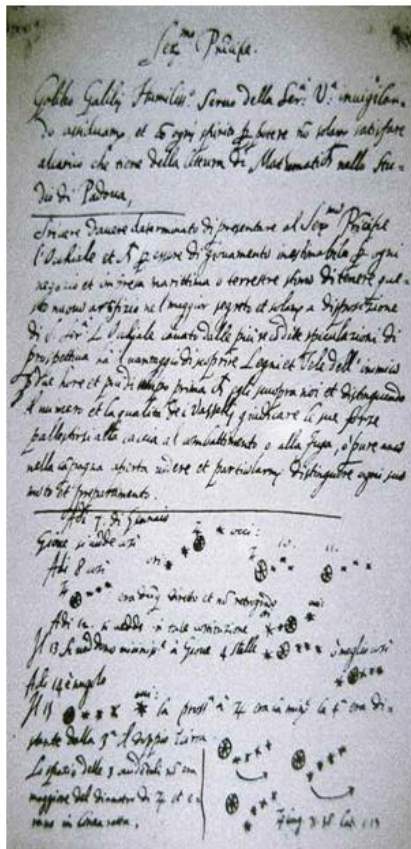 Ser.mo Principe.
Galileo Galilej Humiliss.o Servo della Ser.a V.a invigilan-
do assiduam.te et co ogni spirito p potere no solam.te satisfare
al carico che tiene della lettura di Mathematiche nello Stu-
dio di Padova,
Scrivere d'avere determinato di presentare al Ser.mo Principe
l'Occhiale et p essere di giovamento inestimabile p ogni
negozio et impresa marittima o terrestre stimo di tenere que-
sto nuovo artifizio nel maggior segreto et solam.te a disposizione
di S. Ser.a L'Occhiale cavato dalle più recondite speculazioni di
prospettiva ha il vantaggio di scoprire Legni et Vele dell'inimico
Due hore et più di tempo prima egli scuopra noi et distinguendo
il numero et la qualità de i Vasselli giudicare le sue forze
pallestirsi alla caccia al combattimento o alla fuga, o pure anco
nella capagna aperta vedere et particolarm.te distinguere ogni suo
moto et preparamento.
Adi 7. di Gennaio
Giove si vede così
Adi 8 così
era diretto et no retrogrado
Adi 12. si vedde in tale costituzione
Il 13 si veddono à Giove 4 stelle ò meglio così
Adi 14 è nugolo
Il 15 la pross.a à era la 4.a era di-
stante dalla 3.a il doppio
Lo spazio delle 3 no era
maggiore del diametro di et e-
rano in linea retta.